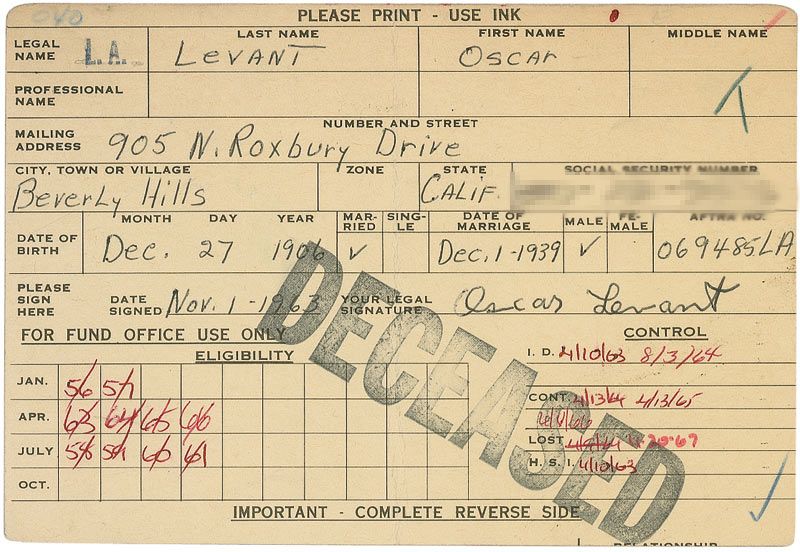 PLEASE PRINT - USE INK
LEGAL NAME L.A. LAST NAME LEVANT FIRST NAME Oscar MIDDLE NAME
PROFESSIONAL NAME
MAILING ADDRESS NUMBER AND STREET 905 N. Roxbury Drive
CITY, TOWN OR VILLAGE Beverly Hills ZONE STATE CALIF. SOCIAL SECURITY NUMBER
DATE OF BIRTH MONTH Dec. DAY 27 YEAR 1906 MARRIED ✓ SINGLE DATE OF MARRIAGE Dec. 1-1939 MALE ✓ FEMALE AFTRA NO. 069485LA
PLEASE SIGN HERE DATE SIGNED Nov. 1-1963 YOUR LEGAL SIGNATURE Oscar Levant
DECEASED
FOR FUND OFFICE USE ONLY CONTROL
ELIGIBILITY I. D. 4/10/63 8/3/64
JAN. 56 57
CONT. 4/13/64 4/13/65
APR. 63 64 65 66
LOST
JULY 58 59 60 61
H. S. I. 4/10/63
OCT.
IMPORTANT - COMPLETE REVERSE SIDE
RELATIONSHIP